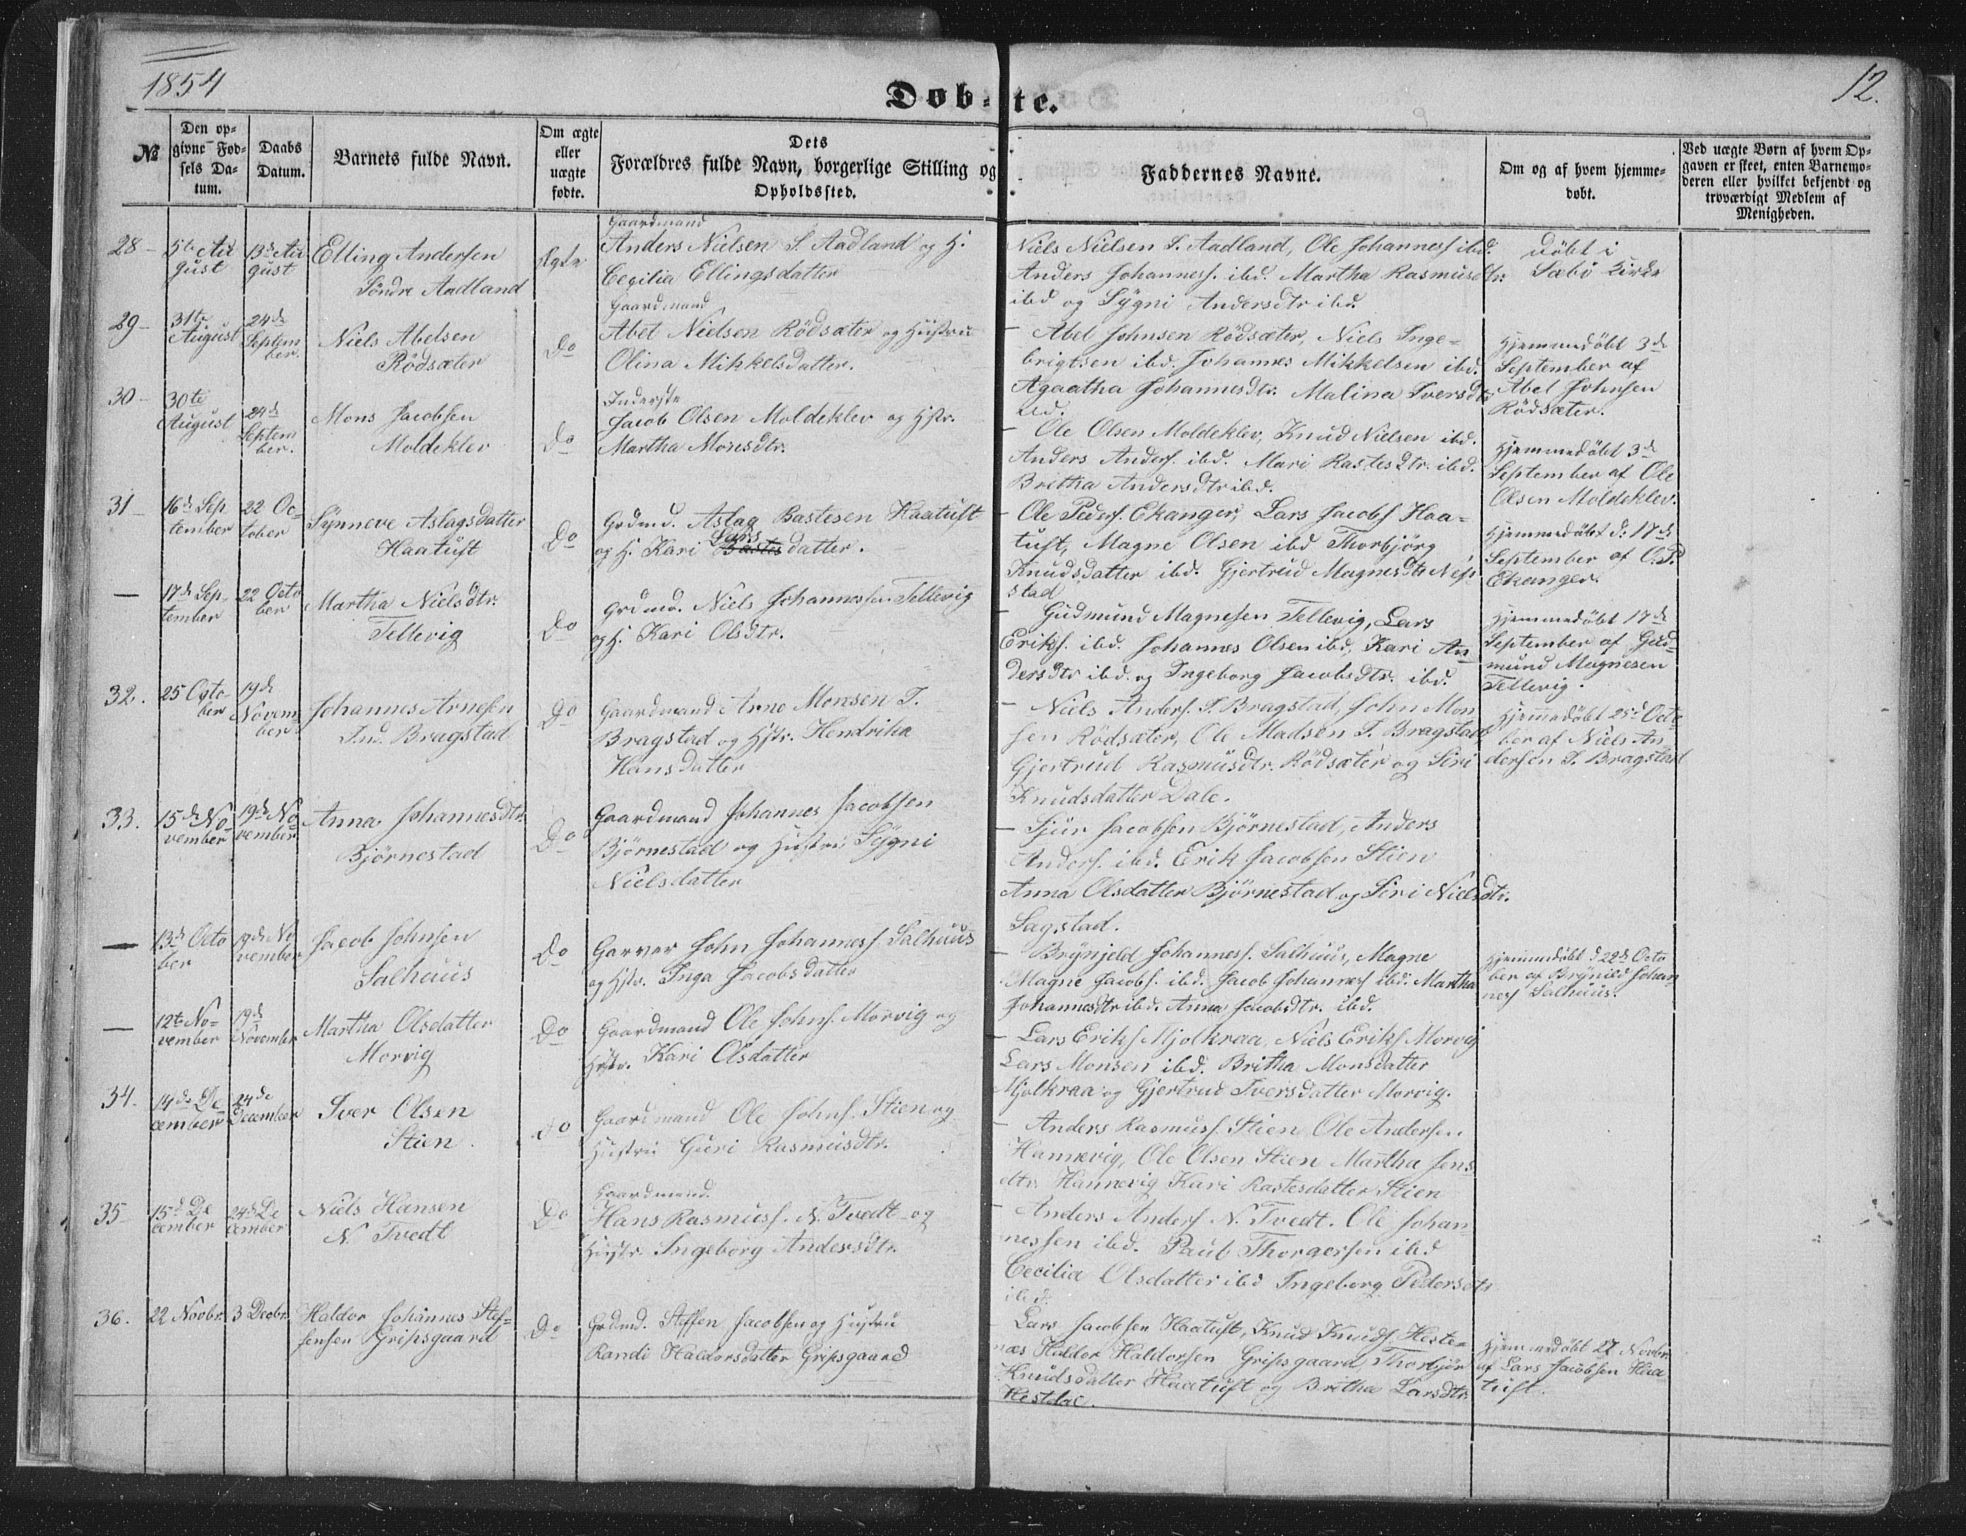 1854
12.
Døbte.
№
Den opgivne Fødsels Datum.
Daabs Datum.
Barnets fulde Navn.
Om ægte eller uægte fødte.
Dets Forældres fulde Navn, borgerlige Stilling og Opholdssted.
Faddernes Navne.
Om og af hvem hjemmedøbt.
Ved uægte Børn af hvem Opgaven er skeet, enten Barnemoderen eller hvilket bekjendt og troværdigt Medlem af Menigheden.
28 - 5te August 13de August Elling Andersen Søndre Aadland Ægte
Gaardmand
Anders Nielsen S. Aadland og H.
Cecilia Ellingsdatter
Niels Nielsen S. Aadland, Ole Johanness ibd.
Anders Johanness. ibd. Martha Rasmusdtr.
ibd og Sÿgni Andersdtr ibd.
døbt i
Sæbø Kirke
29 - 31te August 24de September Niels Abelsen Rödsæter Do
Gaardmand
Abel Nielsen Rödsæter og Hustru
Olina Mikkelsdatter.
- Abel Johnsen Rödsæter, Niels Inge-
brigtsen ibd. Johannes Mikkelsen ibd.
Agaatha Johannesdtr. Malina Iversdtr
ibd.
Hjemmedöbt 3de
September af
Abel Johnsen
Rödsæter.
30 - 30te August 24de September. Mons Jacobsen Moldeklev Do
Inderste
Jacob Olsen Moldeklev og Hstr.
Martha Monsdtr.
- Ole Olsen Moldeklev, Knud Nielsen ibd.
Anders Anders. ibd. Mari Rastesdtr. ibd.
Britha Andersdtr ibd.
Hjemmedöbt 3de
September af Ole
Olsen Moldeklev.
31 - 16de September 22 October Sÿnneve Aslagsdatter Haatuft Do
Grdmd. Aslag Bastesen Haatuft
og H. Kari Bastes Lars datter.
- Ole Peders. Ekanger, Lars Jacobs Haa-
tuft, Magne Olsen ibd Thorbjørg
Knudsdatter ibd. Gjertrud Magnesdtr
stad
Hjemmedöbt d: 17de
September af O. P.
Ekanger.
— 17de September 22 October Martha Nielsdtr. Tellevig Do
Grdmd. Niels Johannessen Tellevig
og H. Kari Olsdtr.
- Gudmund Magnesen Tellevig, Lars
Eriks. ibd. Johannes Olsen ibd, Kari An-
dersdtr ibd. og Ingeborg Jacobsdtr. ibd.
Hjemmedöbt 17de
September af Gud-
mund Magnesen
Tellevig.
32. 25 October 19de November Johannes Arnesen Ind. Bragstad Do
Gaardmand Arne Monsen I.
Bragstad og Hstr. Hendrika
Hansdatter
- Niels Anders. I. Bragstad, John Mon-
sen Rödsæter, Ole Madsen I. Bragstad
Gjertrud Rasmusdtr. Rödsæter og Siri
Knudsdatter Dale.
Hjemmedöbt 25de Octo-
ber af Niels An-
dersen I. Bragstad
33. 15de November 19de November Anna Johannesdtr. Björnestad Do
Gaardmand Johannes Jacobsen
Björnestad og Hustru Sÿgni
Nielsdatter
- Sjur Jacobsen Björnestad, Anders
Anders. ibd. Erik Jacobsen Stien
Anna Olsdatter Björnestad og Siri Nielsdtr.
Sagstad.
— 13de October 19de November Jacob Johnsen Salhuus Do
Garver John Johanness. Salhuus
og Hstr. Inga Jacobsdatter
- Brÿnjeld Johanness. Salhuus, Magne
Magne Jacobs. ibd. Jacob Johanness ibd. Martha
Johannesdtr ibd. Anna Jacobsdtr. ibd.
Hjemmedöbt d 22de Octo
ber af Brÿnild Johan-
ness Salhuus.
— 12te November 19de November Martha Olsdatter Morvig Do
Gaardmand Ole Johns. Morvig og
Hstr. Kari Olsdatter
- Lars Eriks Mjolkraa, Niels Eriks Morvig
Lars Monsen ibd. Britha Monsdatter
Mjolkraa og Gjertrud Iversdatter Morvig.
34. 14de December 24de December Iver Olsen Stien. Do
Gaardmand Ole Johns. Stien og
Hustru Guri Rasmusdtr.
- Anders Rasmuss. Stien Ole Andersen
Hannevig, Ole Olsen Stien Martha Jens
dtr. Hannevig Kari Rastesdatter Stien
35 15de December 24de December Niels Hansen N. Tvedt Do
Gaardmand.
Hans Rasmuss. N. Tvedt og
Hustr. Ingeborg Andersdtr.
- Anders Anders N. Tvedt. Ole Johan-
nessen ibd. Paul Thorgersen ibd
Cecilia Olsdatter ibd Ingeborg Pedersdtr
ibd.
36. 22 Novbr. 3 Decbr. Haldor Johannes Stef-
fensen Gripsgaard Do
Grdmd. Steffen Jacobsen og Hustru
Randi Haldorsdatter Gripsgaard
Lars Jacobsen Haatuft, Knud Knuds. Heste-
næs Haldor Haldorsen Gripsgaard, Thorbjör
Knudsdatter Haatuft og Britha Larsdtr.
Hjemmedöbt 27 Novbr.
af Lars Jacobsen Haa-
tuft.